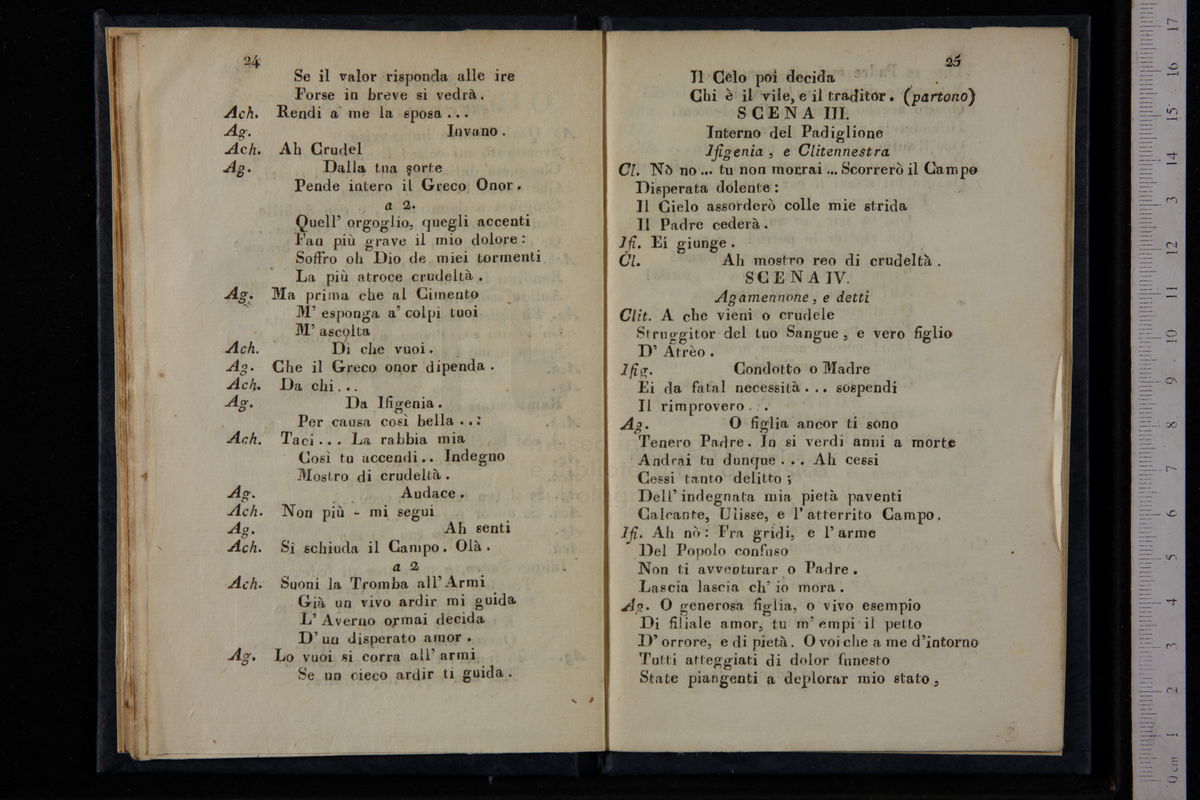 24
Se il valor risponda alle ire
Forse in breve si vedrà.
Ach. Rendi a me la sposa...
Ag. Invano.
Ach. Ah Crudel
Ag. Dalla tua sorte
Pende intero il Greco Onor.
a 2.
Quell' orgoglio, quegli accenti
Fan più grave il mio dolore:
Soffro oh Dio de miei tormenti
La più atroce crudeltà.
Ag. Ma prima che al Cimento
M' esponga a' colpi tuoi
M' ascolta
Ach. Di che vuoi.
Ag. Che il Greco onor dipenda.
Ach. Da chi...
Ag. Da Ifigenia.
Per causa così bella..:
Ach. Taci... La rabbia mia
Così tu accendi.. Indegno
Mostro di crudeltà.
Ag. Audace.
Ach. Non più - mi segui
Ag. Ah senti
Ach. Si schiuda il Campo. Olà.
a 2
Ach. Suoni la Tromba all' Armi
Già un vivo ardir mi guida
L' Averno ormai decida
D' un disperato amor.
Ag. Lo vuoi si corra all' armi
Se un cieco ardir ti guida.
25
Il Celo poi decida
Chi è il vile, e il traditor. (partono)
SCENA III.
Interno del Padiglione
Ifigenia, e Clitennestra
Cl. Nò no... tu non morrai... Scorrerò il Campo
Disperata dolente:
Il Cielo assorderò colle mie strida
Il Padre cederà.
Ifi. Ei giunge.
Cl. Ah mostro reo di crudeltà.
SCENA IV.
Agamennone, e detti
Clit. A che vieni o crudele
Struggitor del tuo Sangue, e vero figlio
D' Atrèo.
Ifig. Condotto o Madre
Ei da fatal necessità... sospendi
Il rimprovero...
Ag. O figlia ancor ti sono
Tenero Padre. In si verdi anni a morte
Andrai tu dunque... Ah cessi
Cessi tanto delitto;
Dell' indegnata mia pietà paventi
Calcante, Ulisse, e l' atterrito Campo.
Ifi. Ah nò: Fra gridi, e l' arme
Del Popolo confuso
Non ti avventurar o Padre.
Lascia lascia ch' io mora.
Ag. O generosa figlia, o vivo esempio
Di filiale amor, tu m' empi il petto
D' orrore, e di pietà. O voi che a me d'intorno
Tutti atteggiati di dolor funesto
State piangenti a deplorar mio stato,